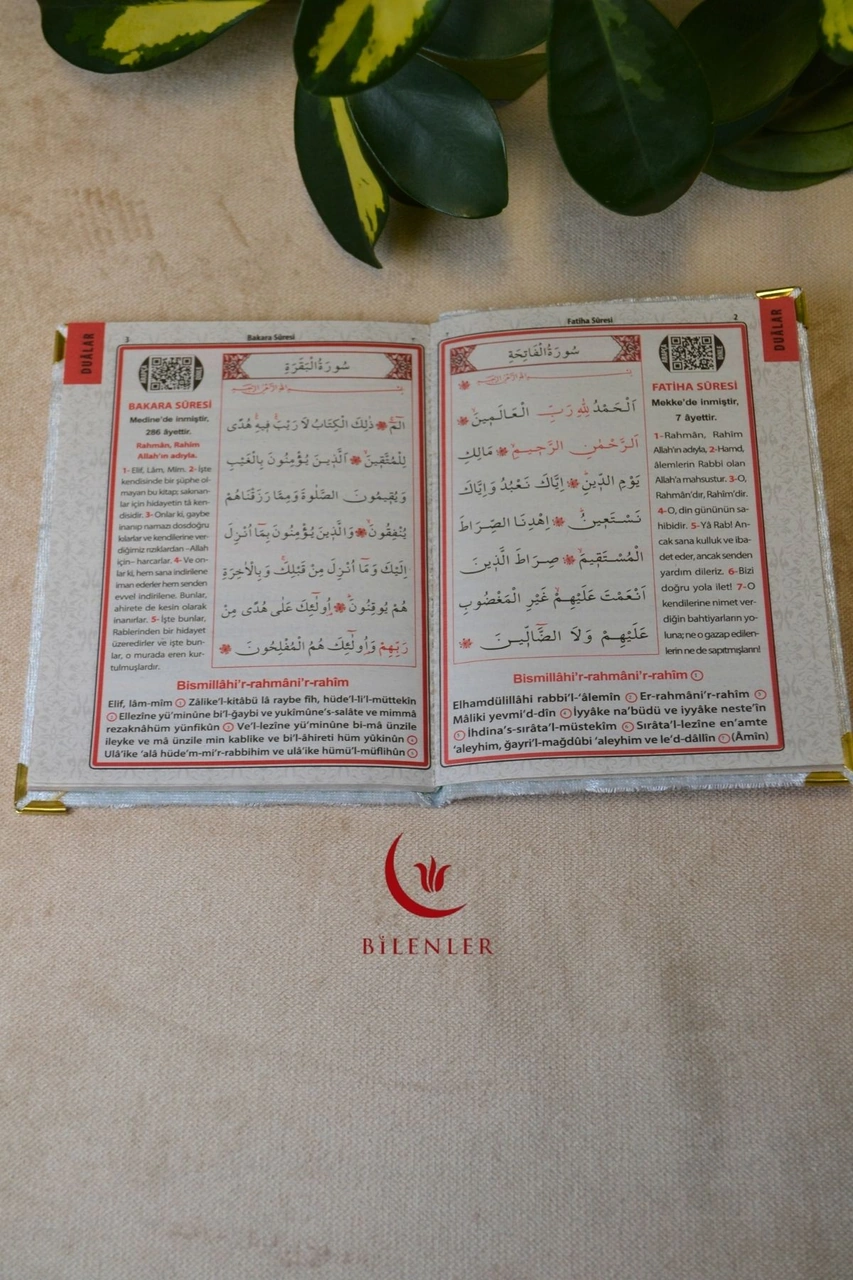 Fatiha Sûresi
2
DUÂLAR
سُورَةُ الْفَاتِحَةِ
اَلْحَمْدُ لِلّٰهِ رَبِّ الْعَالَمٖينَ
اَلرَّحْمٰنِ الرَّحٖيمِ مَالِكِ
يَوْمِ الدّٖينِ اِيَّاكَ نَعْبُدُ وَاِيَّاكَ
نَسْتَعٖينُ اِهْدِنَا الصِّرَاطَ
الْمُسْتَقٖيمَ صِرَاطَ الَّذٖينَ
اَنْعَمْتَ عَلَيْهِمْ غَيْرِ الْمَغْضُوبِ
عَلَيْهِمْ وَلَا الضَّٓالّٖينَ
FATİHA SÛRESİ
Mekke’de inmiştir,
7 âyettir.
1- Rahmân, Rahîm
Allah’ın adıyla, 2- Hamd,
âlemlerin Rabbi olan
Allah’a mahsustur. 3- O,
Rahmân’dır, Rahîm’dir.
4- O, din gününün sa-
hibidir. 5- Yâ Rab! An-
cak sana kulluk ve iba-
det eder, ancak senden
yardım dileriz. 6- Bizi
doğru yola ilet! 7- O
kendilerine nimet ver-
diğin bahtiyarların yo-
luna; ne o gazap edilen-
lerin ne de sapıtmışların!
Bismillâhi’r-rahmâni’r-rahîm
Elhamdülillâhi rabbi’l-‘âlemîn Er-rahmâni’r-rahîm
Mâliki yevmi’d-dîn İyyâke na’büdü ve iyyâke neste’în
İhdina’s-sırâta’l-müstekîm Sırâta’l-lezîne en’amte
‘aleyhim, ğayri’l-mağdûbi ‘aleyhim ve le’d-dâllîn (Âmîn)
DUÂLAR
3
Bakara Sûresi
سُورَةُ الْبَقَرَةِ
الٓمٓ ذٰلِكَ الْكِتَابُ لَا رَيْبَ فٖيهِ هُدًى
لِلْمُتَّقٖينَ اَلَّذٖينَ يُؤْمِنُونَ بِالْغَيْبِ
وَيُقٖيمُونَ الصَّلٰوةَ وَمِمَّا رَزَقْنَاهُمْ
يُنْفِقُونَ وَالَّذٖينَ يُؤْمِنُونَ بِمَٓا اُنْزِلَ
اِلَيْكَ وَمَٓا اُنْزِلَ مِنْ قَبْلِكَ وَبِالْاٰخِرَةِ
هُمْ يُوقِنُونَ اُولٰٓئِكَ عَلٰى هُدًى مِنْ
رَبِّهِمْ وَاُولٰٓئِكَ هُمُ الْمُفْلِحُونَ
BAKARA SÛRESİ
Medine’de inmiştir,
286 âyettir.
Rahmân, Rahîm
Allah’ın adıyla.
1- Elif, Lâm, Mîm. 2- İşte
kendisinde bir şüphe ol-
mayan bu kitap; sakınan-
lar için hidayetin tâ ken-
disidir. 3- Onlar ki, gaybe
inanıp namazı dosdoğru
kılarlar ve kendilerine ver-
diğimiz rızıklardan –Allah
için– harcarlar. 4- Ve on-
lar ki, hem sana indirilene
iman ederler hem senden
evvel indirilene. Bunlar,
ahirete de kesin olarak
inanırlar. 5- İşte bunlar,
Rablerinden bir hidayet
üzeredirler ve işte bun-
lar, o murada eren kur-
tulmuşlardır.
Bismillâhi’r-rahmâni’r-rahîm
Elif, lâm-mîm Zâlike’l-kitâbü lâ raybe fîh, hüde’l-li’l-müttekîn
Ellezîne yü’minûne bi’l-ğaybi ve yukîmûne’s-salâte ve mimmâ
rezaknâhüm yünfikûn Ve’l-lezîne yü’minûne bi-mâ ünzile
ileyke ve mâ ünzile min kablike ve bi’l-âhireti hüm yûkinûn
Ulâ’ike ‘alâ hüde’m-mi’r-rabbihim ve ulâ’ike hümü’l-müflihûn
BİLENLER